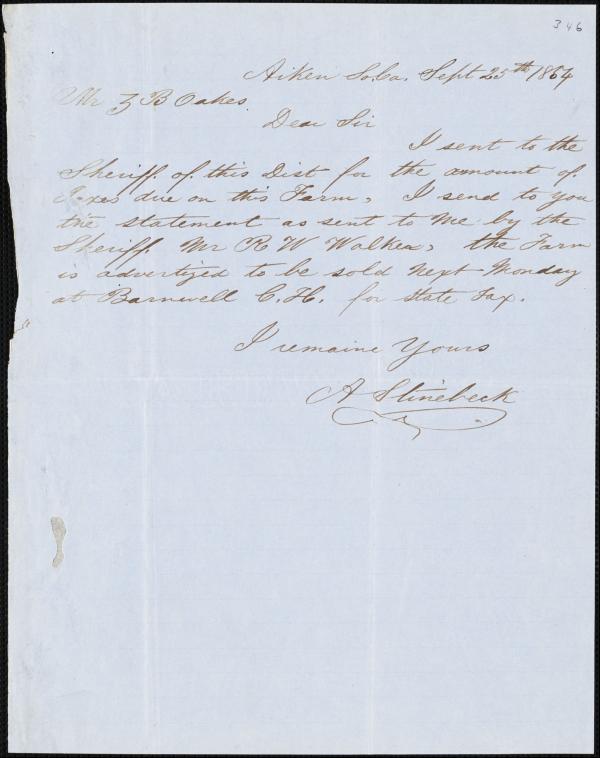 346
Aiken So.Ca. Sept 25th 1864
Mr Z B Oakes.
Dear Sir
I sent to the
Sheriff. of this Dist for the amount of
Taxes due on this Farm, I send to you
the statement as sent to me by the
Sheriff Mr R W Walker, the Farm
is advertized to be sold next Monday
at Barnwell C. H. for State Tax.
I remaine Yours
A Stinebeck